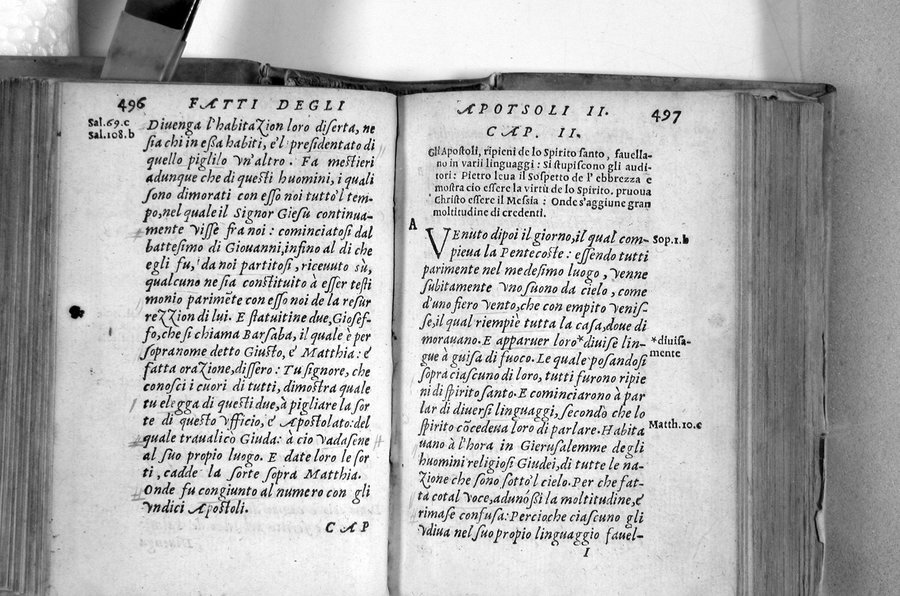 496 FATTI DEGLI
Sal.69.c
Sal.108.b
Diuenga l'habitaZion loro diserta, ne
sia chi in essa habiti, e'l presidentado di
quello piglilo vn'altro. Fa mestieri
adunque che di questi huomini, i quali
sono dimorati con esso noi tutto'l tem-
po, nel quale il Signor Giesù continua-
mente vissè fra noi: cominciatosi dal
battesimo di Giouanni, infino al di che
egli fu, da noi partitosi, riceuuto sù,
qualcuno ne sia constituito à esser testi
monio parimēte con esso noi de la resur
reZZion di lui. E statuitine due, Giosef-
fo, che si chiama Barsaba, il quale è per
sopranome detto Giusto, e' Matthia: e'
fatta oraZione, dissero: Tu signore, che
conosci i cuori di tutti, dimostra quale
tu elegga di questi due, à pigliare la sor
te di questo Vfficio, e' Apostolato: del
quale traualicò Giuda: à cio vadasene
al suo propio luogo. E date loro le sor
ti, cadde la sorte sopra Matthia.
Onde fu congiunto al numero con gli
vndici Apostoli.
CAP
APOTSOLI II. 497
CAP. II.
Gli Apostoli, ripieni de lo Spirito santo, fauella-
no in varii linguaggi: Si stupiscono gli audi-
tori: Pietro leua il Sospetto de l'ebbrezza e
mostra cio essere la virtù de lo Spirito. pruoua
Christo essere il Messia: Onde s'aggiune gran
moltitudine di credenti.
A
VEnuto dipoi il giorno, il qual com-
pieua la Pentecoste: essendo tutti
parimente nel medesimo luogo, venne
subitamente vno suono da cielo, come
d'uno fiero vento, che con empito venis-
se, il qual riempiè tutta la casa, doue di
morauano. E apparuer loro*diuisè lin-
gue à guisa di fuoco. Le quale posandosi
sopra ciascuno di loro, tutti furono ripie
ni di spirito santo. E cominciarono à par
lar di diuersi linguaggi, secondo che lo
spirito cōcedeua loro di parlare. Habita
uano à l'hora in Gierusalemme degli
huomini religiosi Giudei, di tutte le na-
Zione che sono sotto'l cielo. Per che fat-
ta cotal voce, adunóssi la moltitudine, e'
rimase confusa: Percioche ciascuno gli
vdiua nel suo propio linguaggio fauel-
I
Sop.1.b
*diuisa-
mente
Matth.10.c